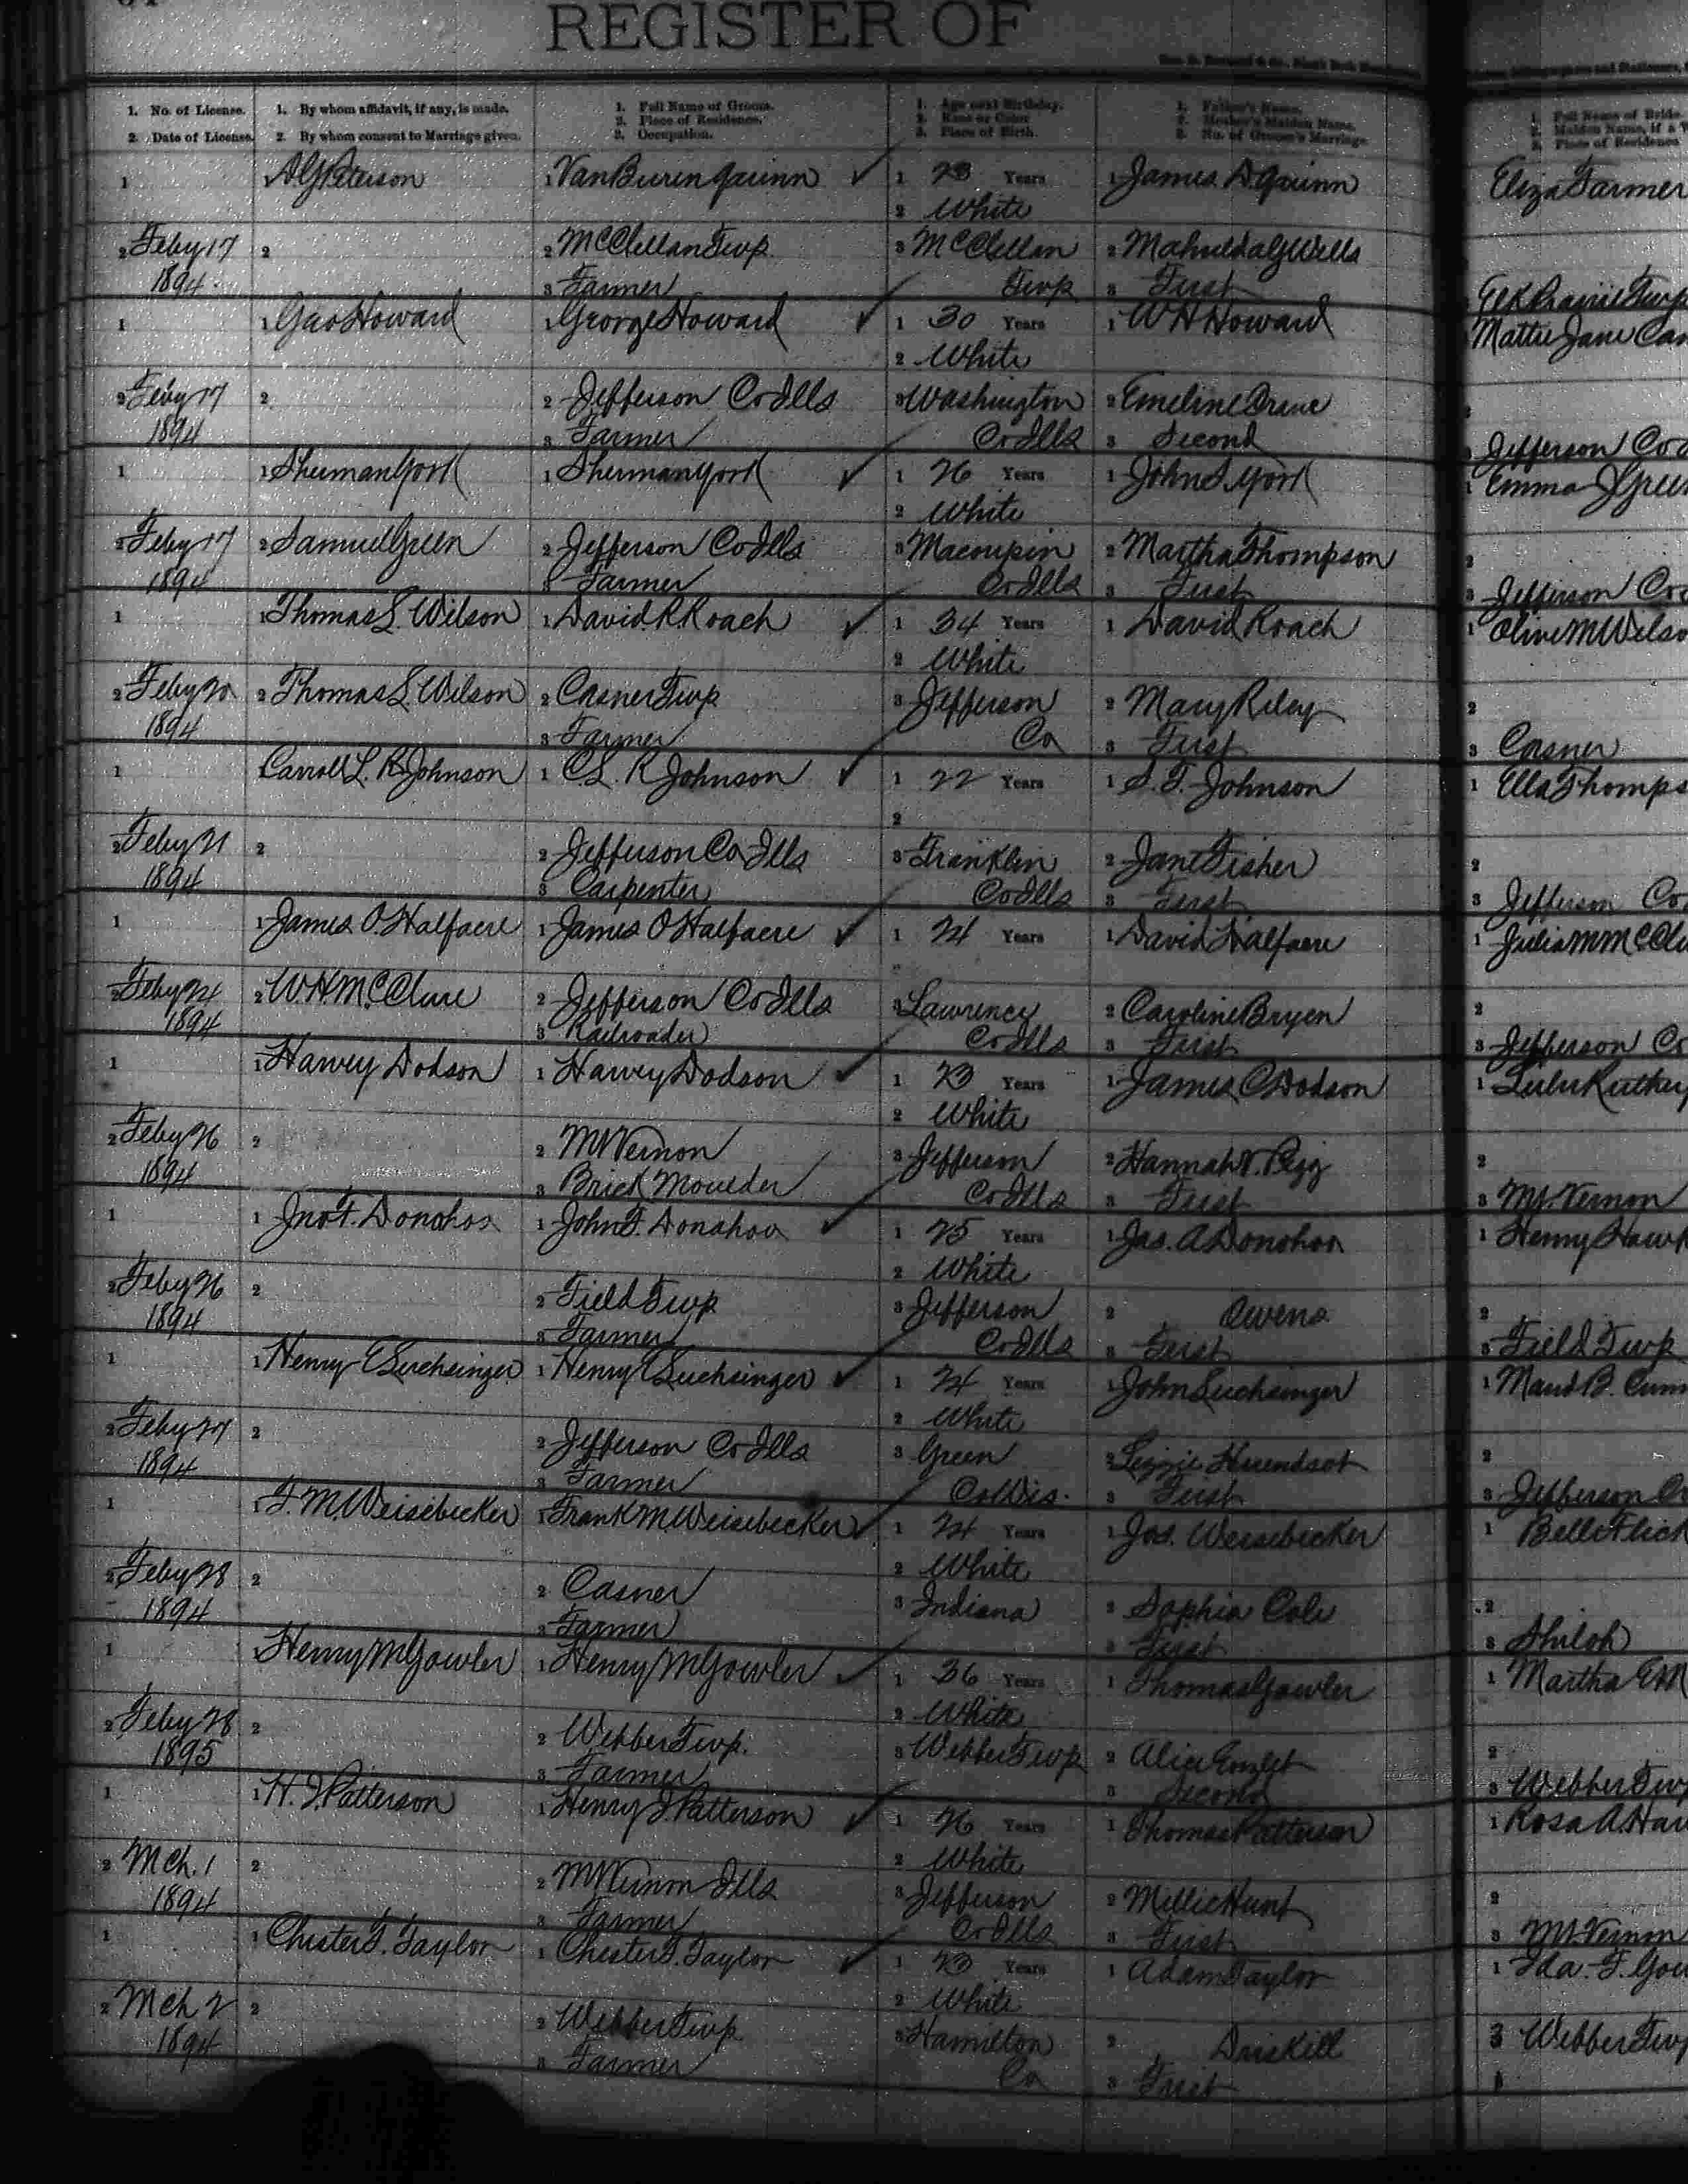 REGISTER OF
1. No. of License.
2. Date of License.
1. By whom affidavit, if any, is made.
2. By whom consent to Marriage given.
1. Full Name of Groom.
2. Place of Residence.
3. Occupation.
1. Age next Birthday.
2. Race or Color
3. Place of Birth.
1. Father's Name.
2. Mother's Maiden Name.
3. No. of Groom's Marriage.
1. Full Name of Bride.
2. Maiden Name, if a
3. Place of Residence
1 1 A G Peterson 1 Van Buren Quinn ✓ 1 23 Years 1 James D. Quinn Eliza Farmer
2 White
2 Feby 17 2 2 McClellan Twp. 3 McClellan 2 Wells
1894 3 Farmer Twp 3 First Elk Prairie Twp
1 1 Geo Howard 1 George Howard ✓ 1 30 Years 1 W H Howard Mattie Jane
2 White
2 Feby 17 2 2 Jefferson Co Ills 3 Washington 2 Emeline Crane 2
1894 3 Farmer Co Ills 3 Second 3 Jefferson Co
1 1 Sherman York 1 Sherman York ✓ 1 26 Years 1 John S. York 1 Emma J Green
2 White
2 Feby 17 2 Samuel Green 2 Jefferson Co Ills 3 Macoupin 2 Martha Thompson 2
1894 3 Farmer Co Ills 3 First 3 Jefferson Co
1 1 Thomas L. Wilson 1 David R. Roach ✓ 1 34 Years 1 David Roach 1 Olive M Wilso
2 White
2 Feby 20 2 Thomas L. Wilson 2 Casner Twp 3 Jefferson 2 Mary Riley 2
1894 3 Farmer Co 3 First 3 Casner
1 Carroll L. R. Johnson 1 C. L. R. Johnson ✓ 1 22 Years 1 S. T. Johnson 1 Ella Thomps
2
2 Feby 21 2 2 Jefferson Co Ills 3 Franklin 2 Jane Fisher 2
1894 3 Carpenter Co Ills 3 First 3 Jefferson Co.
1 1 James O. Halfacre 1 James O Halfacre ✓ 1 24 Years 1 David Halfacre 1 Julia M McClu
2 Feby 24 2 W H McClure 2 Jefferson Co Ills 3 Lawrence 2 Caroline Bryen 2
1894 3 Railroader Co Ills 3 First 3 Jefferson Co
1 1 Harvey Dodson 1 Harvey Dodson ✓ 1 23 Years 1 James C Dodson 1 Lulu Ruther
2 White
2 Feby 26 2 2 Mt Vernon 3 Jefferson 2 Hannah V. Pegg 2
1894 3 Brick Moulder Co Ills 3 First 3 Mt. Vernon
1 1 Jno F. Donohoo 1 John F. Donahoo ✓ 1 25 Years 1 Jas. A Donohoo 1 Henry Hawk
2 White
2 Feby 26 2 2 Field Twp 3 Jefferson 2 Owens 2
1894 3 Farmer Co Ills 3 First 3 Field Twp
1 1 Henry E Luchsinger 1 Henry E Luchsinger ✓ 1 24 Years 1 John Luchsinger 1 Maud B. Cum
2 White
2 Feby 27 2 2 Jefferson Co Ills 3 Green 2 Lizzie 2
1894 3 Farmer Co Wis. 3 First 3 Jefferson Co
1 1 F. M. Weisebecker 1 Frank M Weisebecker ✓ 1 24 Years 1 Jos. Weisebecker 1 Belle Flick
2 White
2 Feby 28 2 2 Casner 3 Indiana 2 Sophia Cole 2
1894 3 Farmer 3 First 3 Shiloh
1 1 Henry M Gowler 1 Henry M Gowler ✓ 1 36 Years 1 Thomas Gowler 1 Martha E M
2 White
2 Feby 28 2 2 Webber Twp. 3 Webber Twp 2 Alice 2
1895 3 Farmer 3 Second 3 Webber Twp
1 1 H. J. Patterson 1 Henry J. Patterson ✓ 1 26 Years 1 Thomas Patterson 1 Rosa A. Haw
2 White
2 Mch. 1 2 2 Mt Vernon Ills 3 Jefferson 2 Millie Hunt 2
1894 3 Farmer Co Ills 3 First 3 Mt Vernon
1 1 Chester F. Taylor 1 Chester F. Taylor ✓ 1 23 Years 1 Adam Taylor 1 Ida. F. Gow
2 White
2 Mch 2 2 2 Webber Twp. 3 Hamilton 2 Driskill 3 Webber Twp
1894 3 Farmer Co 3 First